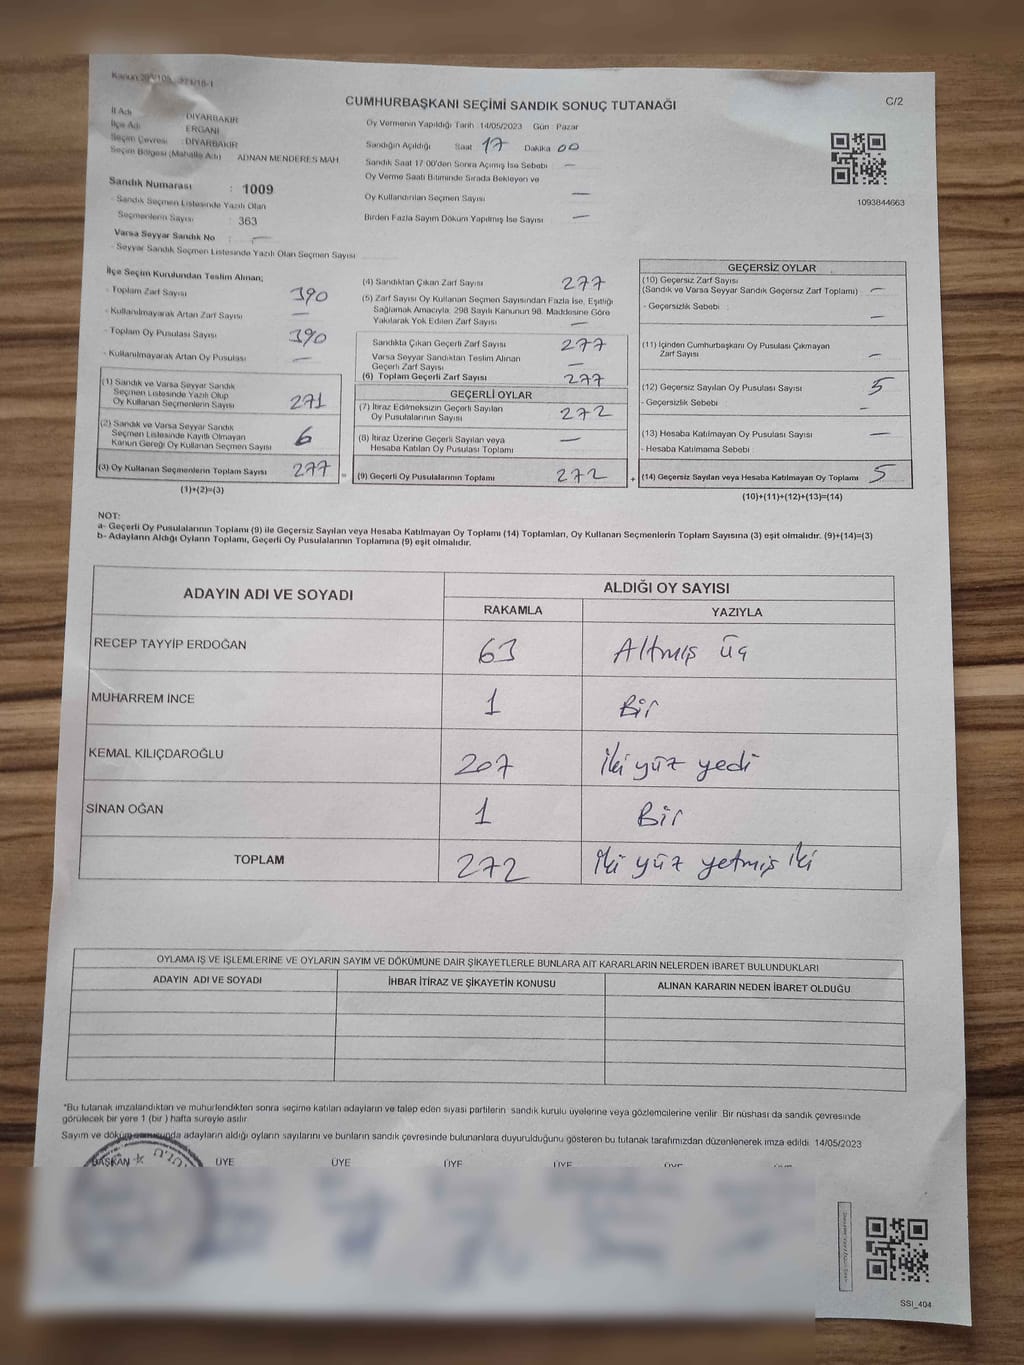 CUMHURBAŞKANI SEÇİMİ SANDIK SONUÇ TUTANAĞI
C/2
İl Adı DİYARBAKIR
İlçe Adı ERGANİ
Seçim Çevresi DİYARBAKIR
Seçim Bölgesi (Mahalle Adı) ADNAN MENDERES MAH
Sandık Numarası : 1009
- Sandık Seçmen Listesinde Yazılı Olan
Seçmenlerin Sayısı : 363
Varsa Seyyar Sandık No : —
- Seyyar Sandık Seçmen Listesinde Yazılı Olan Seçmen Sayısı
Oy Vermenin Yapıldığı Tarih 14/05/2023 Gün : Pazar
Sandığın Açıldığı Saat 17 Dakika 00
Sandık Saat 17:00'den Sonra Açılmış İse Sebebi —
Oy Verme Saati Bitiminde Sırada Bekleyen ve
Oy Kullandırılan Seçmen Sayısı —
Birden Fazla Sayım Döküm Yapılmış İse Sayısı —
1093844663
İlçe Seçim Kurulundan Teslim Alınan;
- Toplam Zarf Sayısı 390
- Kullanılmayarak Artan Zarf Sayısı —
- Toplam Oy Pusulası Sayısı 390
- Kullanılmayarak Artan Oy Pusulası —
(1) Sandık ve Varsa Seyyar Sandık
Seçmen Listesinde Yazılı Olup
Oy Kullanan Seçmenlerin Sayısı 271
(2) Sandık ve Varsa Seyyar Sandık
Seçmen Listesinde Kayıtlı Olmayan
Kanun Gereği Oy Kullanan Seçmen Sayısı 6
(3) Oy Kullanan Seçmenlerin Toplam Sayısı 277
(1)+(2)=(3)
(4) Sandıktan Çıkan Zarf Sayısı 277
(5) Zarf Sayısı Oy Kullanan Seçmen Sayısından Fazla İse, Eşitliği
Sağlamak Amacıyla, 298 Sayılı Kanunun 98. Maddesine Göre
Yakılarak Yok Edilen Zarf Sayısı —
Sandıkta Çıkan Geçerli Zarf Sayısı 277
Varsa Seyyar Sandıktan Teslim Alınan
Geçerli Zarf Sayısı —
(6) Toplam Geçerli Zarf Sayısı 277
GEÇERLİ OYLAR
(7) İtiraz Edilmeksizin Geçerli Sayılan
Oy Pusulalarının Sayısı 272
(8) İtiraz Üzerine Geçerli Sayılan veya
Hesaba Katılan Oy Pusulası Toplamı —
= (9) Geçerli Oy Pusulalarının Toplamı 272
GEÇERSİZ OYLAR
(10) Geçersiz Zarf Sayısı
(Sandık ve Varsa Seyyar Sandık Geçersiz Zarf Toplamı) —
- Geçersizlik Sebebi : —
(11) İçinden Cumhurbaşkanı Oy Pusulası Çıkmayan
Zarf Sayısı —
(12) Geçersiz Sayılan Oy Pusulası Sayısı 5
- Geçersizlik Sebebi : —
(13) Hesaba Katılmayan Oy Pusulası Sayısı —
- Hesaba Katılmama Sebebi :
+ (14) Geçersiz Sayılan veya Hesaba Katılmayan Oy Toplamı 5
(10)+(11)+(12)+(13)=(14)
NOT:
a- Geçerli Oy Pusulalarının Toplamı (9) ile Geçersiz Sayılan veya Hesaba Katılmayan Oy Toplamı (14) Toplamları, Oy Kullanan Seçmenlerin Toplam Sayısına (3) eşit olmalıdır. (9)+(14)=(3)
b- Adayların Aldığı Oyların Toplamı, Geçerli Oy Pusulalarının Toplamına (9) eşit olmalıdır.
ADAYIN ADI VE SOYADI ALDIĞI OY SAYISI
RAKAMLA YAZIYLA
RECEP TAYYİP ERDOĞAN 63 Altmış üç
MUHARREM İNCE 1 Bir
KEMAL KILIÇDAROĞLU 207 İki yüz yedi
SİNAN OĞAN 1 Bir
TOPLAM 272 İki yüz yetmiş iki
OYLAMA İŞ VE İŞLEMLERİNE VE OYLARIN SAYIM VE DÖKÜMÜNE DAİR ŞİKAYETLERLE BUNLARA AİT KARARLARIN NELERDEN İBARET BULUNDUKLARI
ADAYIN ADI VE SOYADI İHBAR İTİRAZ VE ŞİKAYETİN KONUSU ALINAN KARARIN NEDEN İBARET OLDUĞU
*Bu tutanak imzalandıktan ve mühürlendikten sonra seçime katılan adayların ve talep eden siyasi partilerin sandık kurulu üyelerine veya gözlemcilerine verilir. Bir nüshası da sandık çevresinde
görülecek bir yere 1 (bir) hafta süreyle asılır.
Sayım ve döküm sonucunda adayların aldığı oyların sayılarını ve bunların sandık çevresinde bulunanlara duyurulduğunu gösteren bu tutanak tarafımızdan düzenlenerek imza edildi. 14/05/2023
BAŞKAN ÜYE ÜYE ÜYE ÜYE ÜYE
SSI_404